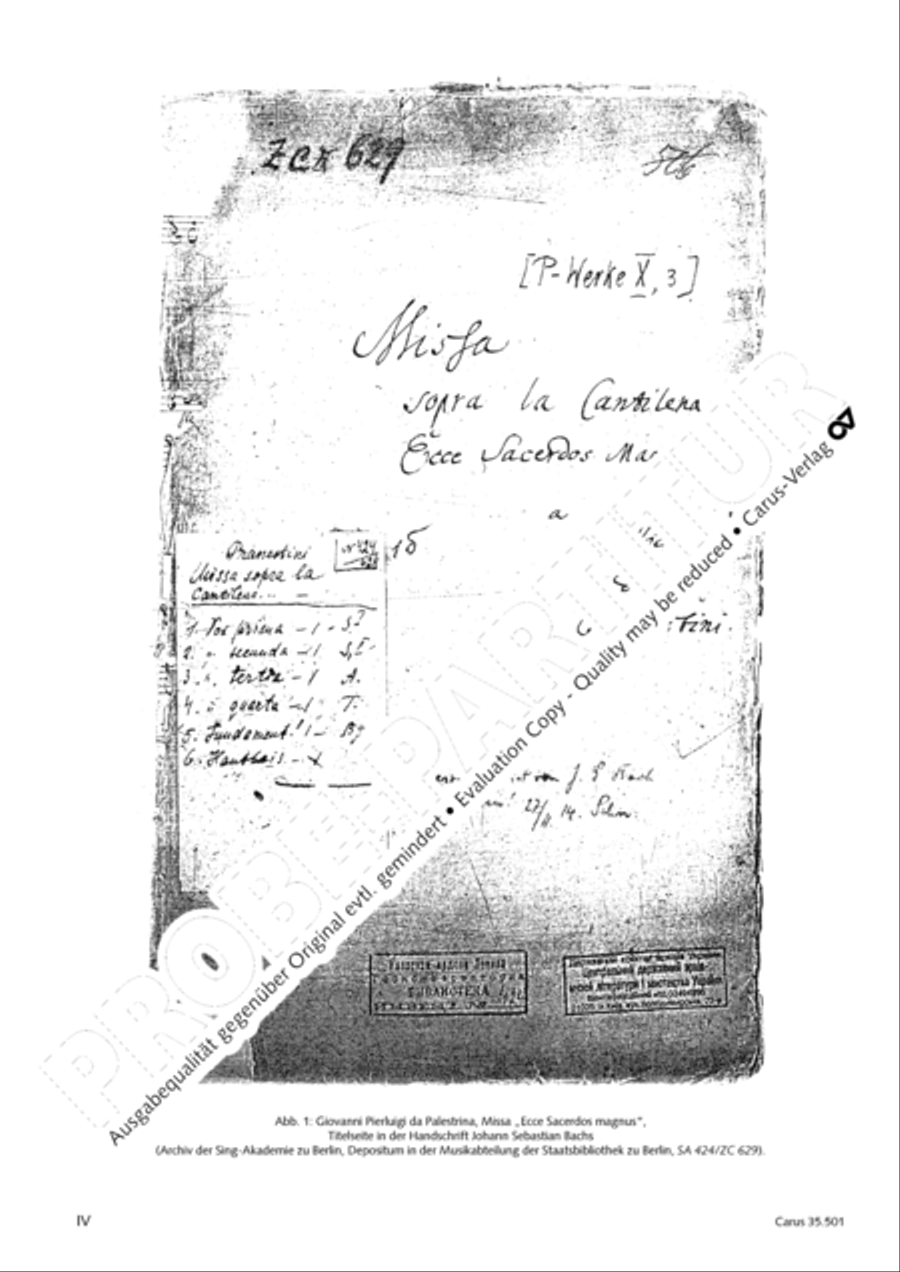 ZCX 629
[P-Werke X, 3]
Missa
sopra la Cantilena
Ecce Sacerdos Ma
a
tini.
N 424
Missa sopra la
Cantilena...
1. Vox prima – 1 – S. I
2. " secunda – 1 S. II
3. " tertia – 1 A.
4. " quarta – 1 T.
5. Fundament – 1 –
6. Hautbois. –
von J. S. Bach
27/II 14. Schn.
PROBEPARTITUR
Ausgabequalität gegenüber Original evtl. gemindert • Evaluation Copy - Quality may be reduced • Carus-Verlag
Abb. 1: Giovanni Pierluigi da Palestrina, Missa „Ecce Sacerdos magnus“,
Titelseite in der Handschrift Johann Sebastian Bachs
(Archiv der Sing-Akademie zu Berlin, Depositum in der Musikabteilung der Staatsbibliothek zu Berlin, SA 424/ZC 629).
IV
Carus 35.501